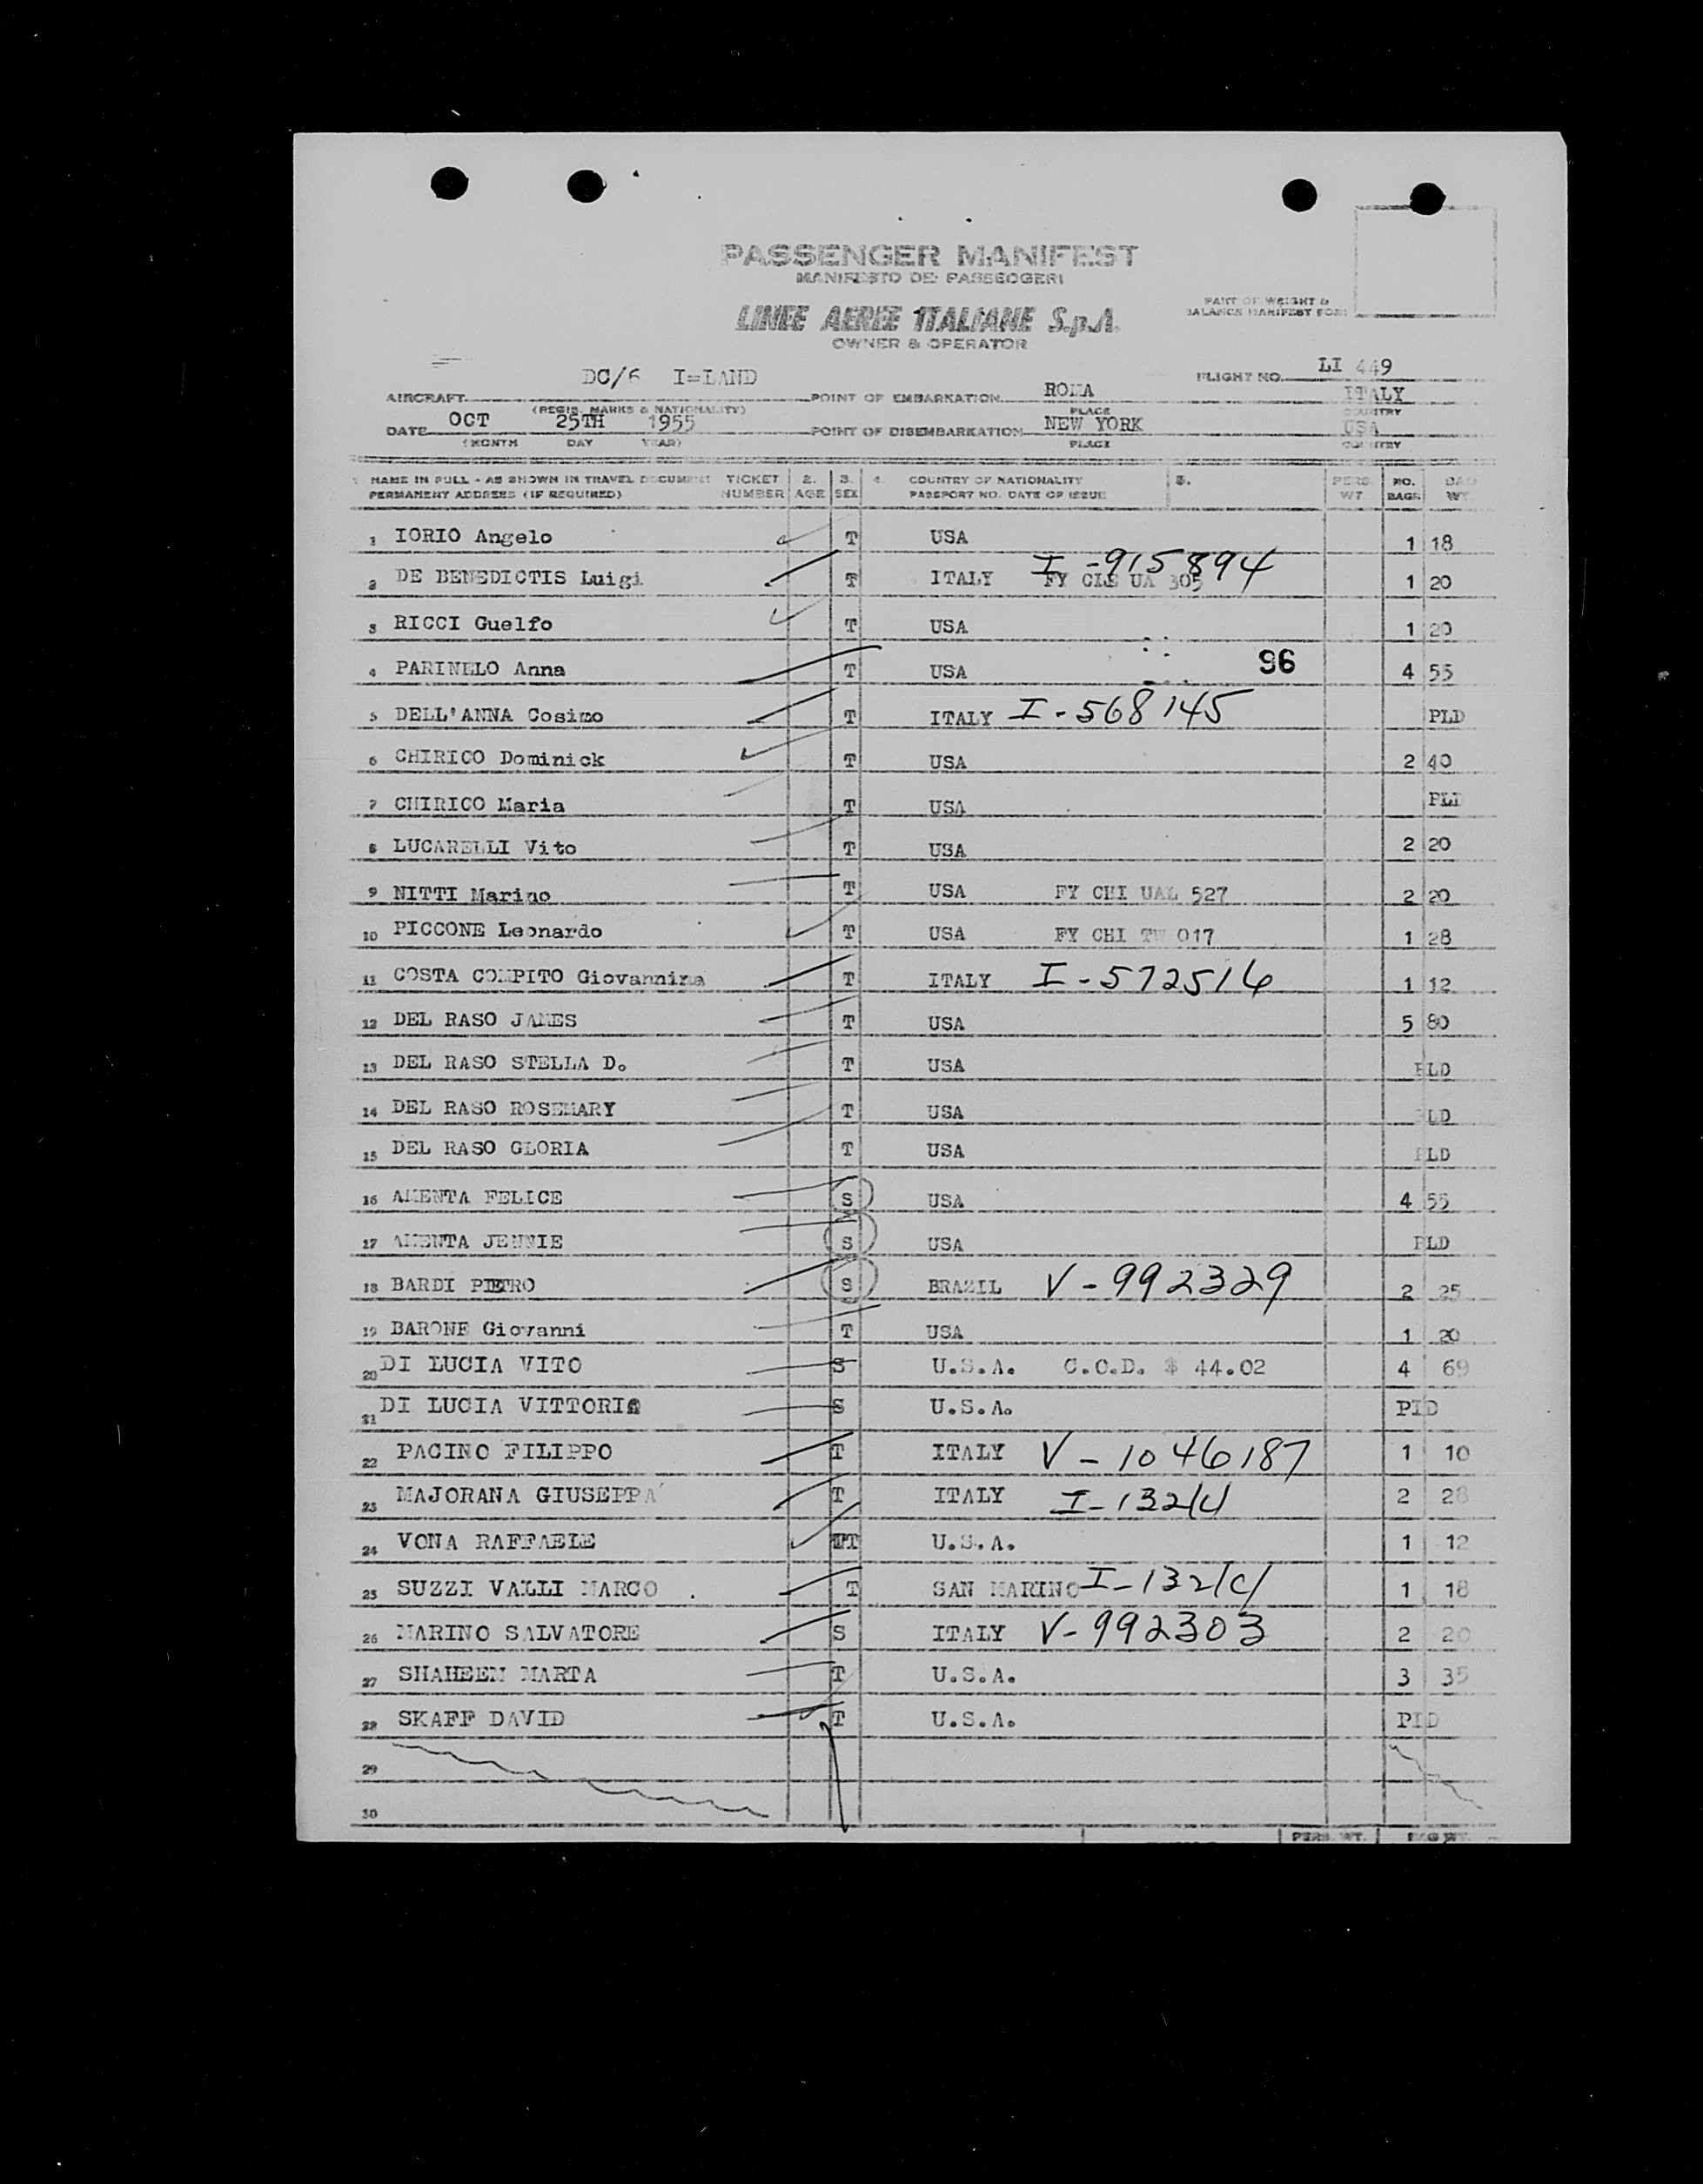 PASSENGER MANIFEST
MANIFESTO DEI PASSEGGERI
LINEE AEREE ITALIANE S.p.A.
OWNER & OPERATOR
PART OF WEIGHT &
BALANCE MANIFEST FOR:
AIRCRAFT DC/6 I=LAND FLIGHT NO. LI 449
(REGIS. MARKS & NATIONALITY) POINT OF EMBARKATION ROMA ITALY
PLACE COUNTRY
DATE OCT 25TH 1955 POINT OF DISEMBARKATION NEW YORK USA
(MONTH DAY YEAR) PLACE COUNTRY
1. NAME IN FULL - AS SHOWN IN TRAVEL DOCUMENT TICKET 2. 3. 4. COUNTRY OF NATIONALITY 5. PERS. NO. BAG
PERMANENT ADDRESS (IF REQUIRED) NUMBER AGE SEX PASSPORT NO. DATE OF ISSUE WT BAGS WT
1 IORIO Angelo T USA 1 18
2 DE BENEDICTIS Luigi T ITALY FY CLE UA 305 I-915894 1 20
3 RICCI Guelfo T USA 1 20
4 PARINELO Anna T USA 96 4 55
5 DELL'ANNA Cosimo T ITALY I-568145 PLD
6 CHIRICO Dominick T USA 2 40
7 CHIRICO Maria T USA PLD
8 LUCARELLI Vito T USA 2 20
9 NITTI Marino T USA FY CHI UAL 527 2 20
10 PICCONE Leonardo T USA FY CHI TW 017 1 28
11 COSTA COMPITO Giovannina T ITALY I-572516 1 12
12 DEL RASO JAMES T USA 5 80
13 DEL RASO STELLA D. T USA PLD
14 DEL RASO ROSEMARY T USA PLD
15 DEL RASO GLORIA T USA PLD
16 AMENTA FELICE S USA 4 55
17 AMENTA JENNIE S USA PLD
18 BARDI PIETRO S BRAZIL V-992329 2 25
19 BARONE Giovanni T USA 1 20
20 DI LUCIA VITO S U.S.A. C.O.D. $ 44.02 4 69
21 DI LUCIA VITTORIA S U.S.A. PLD
22 PACINO FILIPPO T ITALY V-1046187 1 10
23 MAJORANA GIUSEPPA T ITALY 2 28
24 VONA RAFFAELE T U.S.A. 1 12
25 SUZZI VALLI MARCO T SAN MARINO I-132/C/ 1 18
26 MARINO SALVATORE S ITALY V-992303 2 20
27 SHAHEEN MARTA T U.S.A. 3 35
28 SKAFF DAVID T U.S.A. PLD
29
30
PERS. WT. BAG WT.